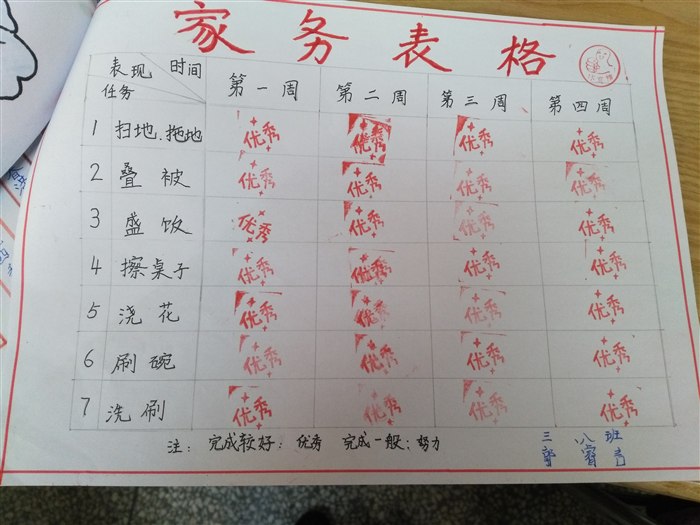 家务表格
表现 时间 第一周 第二周 第三周 第四周
任务
1 扫地、拖地 优秀 优秀 优秀 优秀
2 叠被 优秀 优秀 优秀 优秀
3 盛饭 优秀 优秀 优秀 优秀
4 擦桌子 优秀 优秀 优秀 优秀
5 浇花 优秀 优秀 优秀 优秀
6 刷碗 优秀 优秀 优秀 优秀
7 洗刷 优秀 优秀 优秀 优秀
注: 完成较好: 优秀 完成一般: 努力
三 八 班